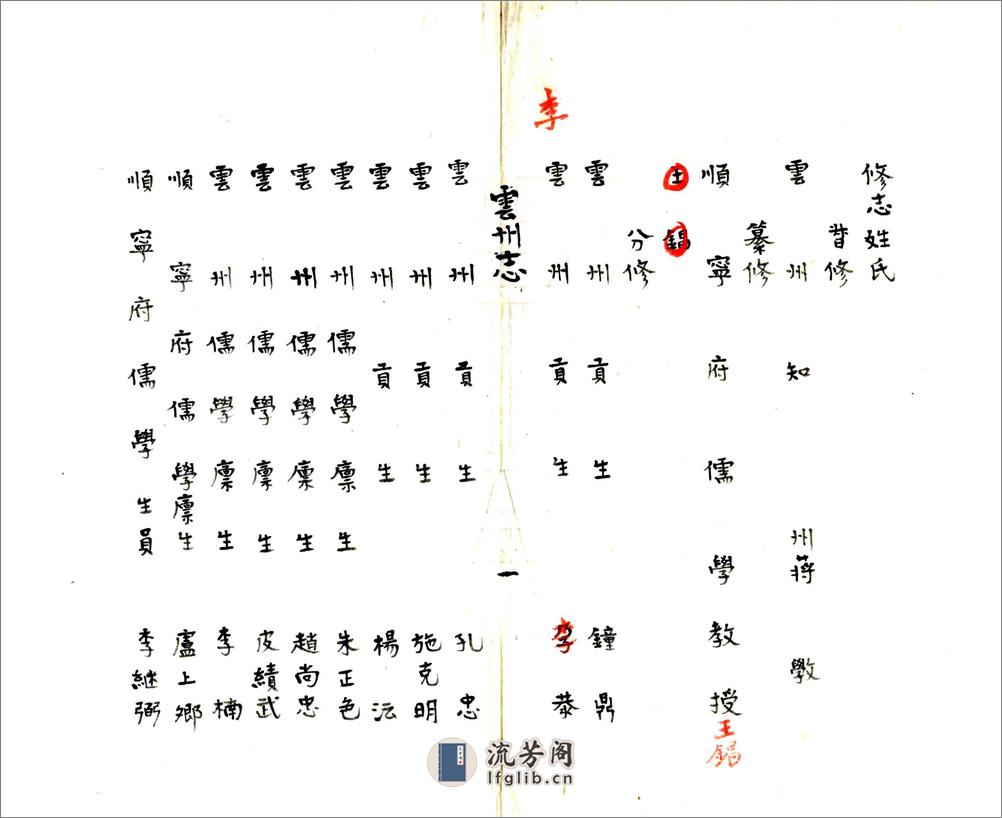 修志姓氏
督修
雲州知州蔣斅
纂修
順寧府儒學教授王錫
王錫
分修
雲州貢生鐘鼎
李
雲州貢生李恭
雲州志
一
雲州貢生孔忠
雲州貢生施克明
雲州貢生楊沄
雲州儒學廪生朱正色
雲州儒學廪生趙尚忠
雲州儒學廪生皮績武
雲州儒學廪生李楠
順寧府儒學廪生盧上鄉
順寧府儒學生員李継弼
流芳阁
lfglib.cn